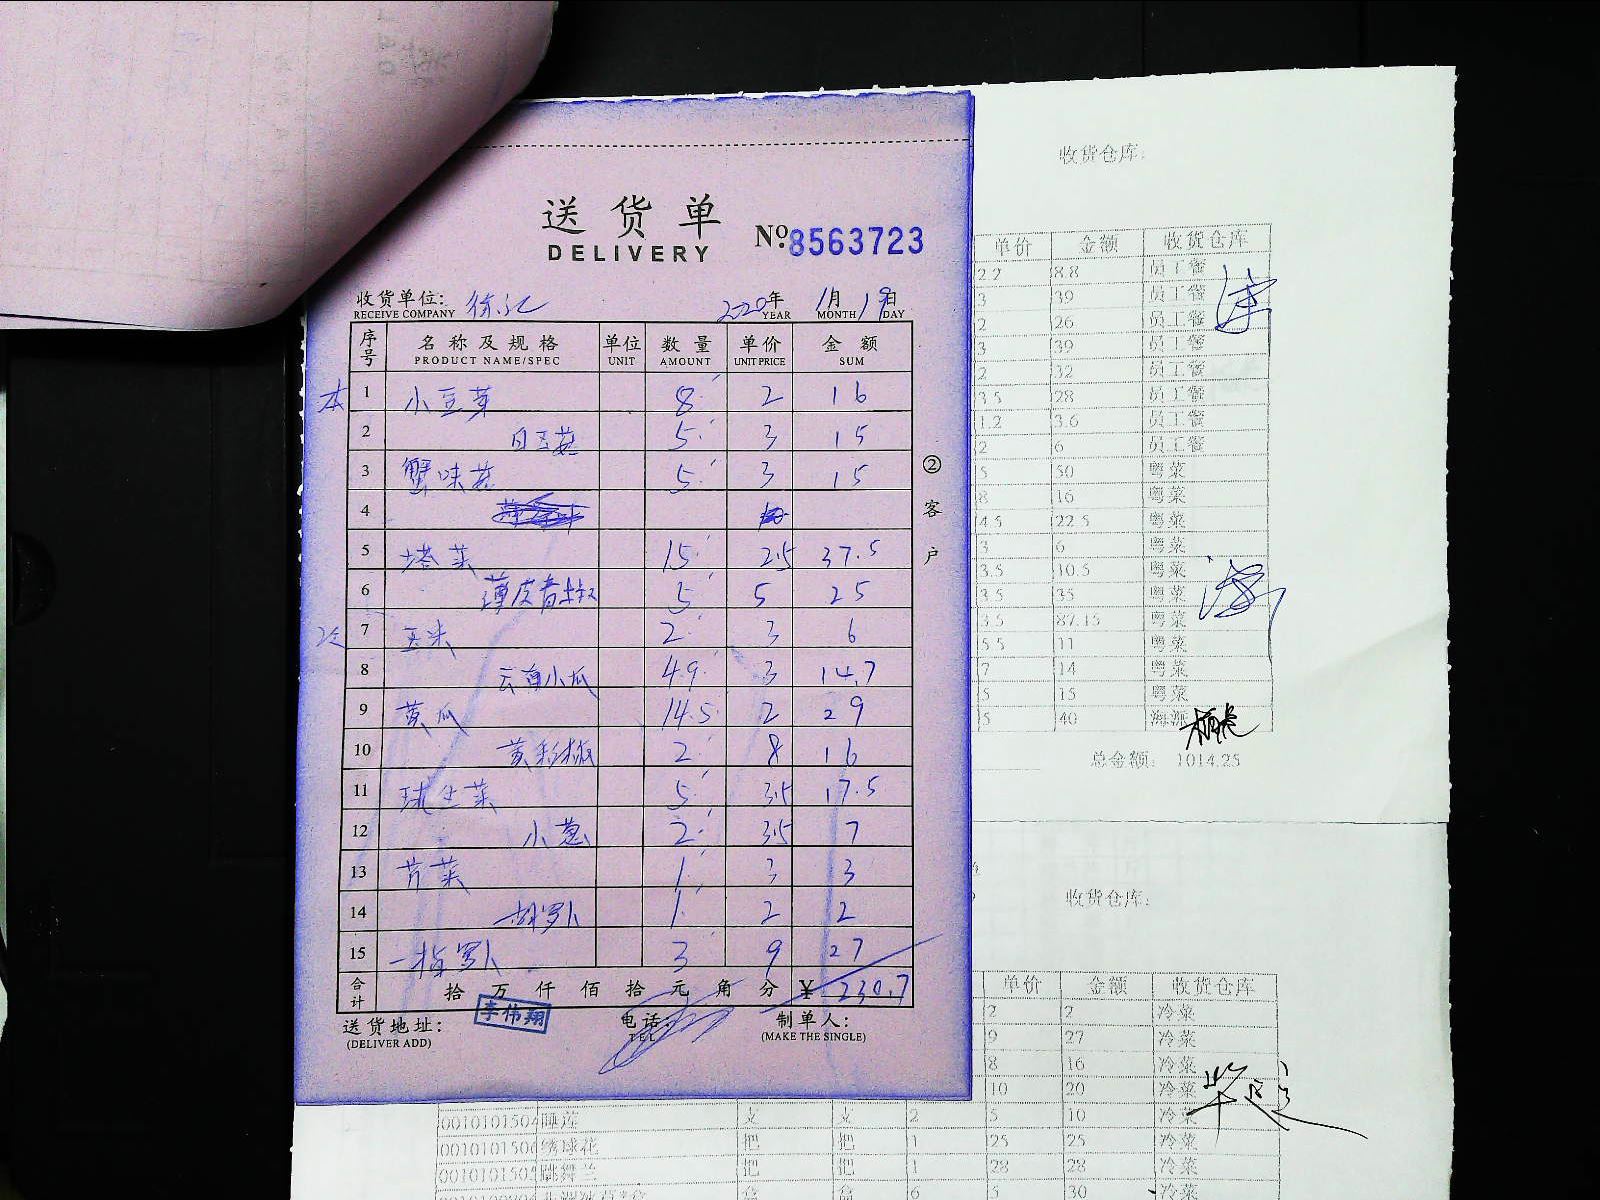 送货单
DELIVERY
№8563723
收货单位: 徐记 2020年 11月 19日
RECEIVE COMPANY YEAR MONTH DAY
序号 名称及规格 单位 数量 单价 金额
PRODUCT NAME/SPEC UNIT AMOUNT UNIT PRICE SUM
本 1 小豆芽 8 2 16
2 白玉菇 5 3 15
3 蟹味菇 5 3 15
4
5 塔菜 15 2.5 37.5
6 薄皮青椒 5 5 25
冷 7 玉米 2 3 6
8 云南小瓜 4.9 3 14.7
9 黄瓜 14.5 2 29
10 黄彩椒 2 8 16
11 球生菜 5 3.5 17.5
12 小葱 2 3.5 7
13 芹菜 1 3 3
14 胡萝卜 1 2 2
15 一指萝卜 3 9 27
合计 拾 万 仟 佰 拾 元 角 分 ¥ 230.7
李伟翔
送货地址: 电话: 制单人:
(DELIVER ADD) TEL (MAKE THE SINGLE)
②客户
收货仓库:
单价 金额 收货仓库
2.2 8.8 员工餐
3 39 员工餐
2 26 员工餐
3 39 员工餐
2 32 员工餐
3.5 28 员工餐
1.2 3.6 员工餐
2 6 员工餐
5 50 粤菜
8 16 粤菜
4.5 22.5 粤菜
3 6 粤菜
3.5 10.5 粤菜
3.5 35 粤菜
3.5 87.15 粤菜
5.5 11 粤菜
7 14 粤菜
5 15 粤菜
5 40 海派
总金额: 1014.25
收货仓库:
单价 金额 收货仓库
2 2 冷菜
9 27 冷菜
8 16 冷菜
10 20 冷菜
0010101504 睡莲 支 支 2 5 10 冷菜
0010101506 绣球花 把 把 1 25 25 冷菜
0010101505 跳舞兰 把 把 1 28 28 冷菜
盒 盒 6 5 30 冷菜